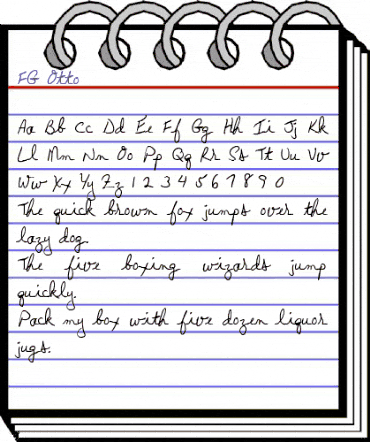 FG Otto
Aa Bb Cc Dd Ee Ff Gg Hh Ii Jj Kk
Ll Mm Nn Oo Pp Qq Rr Ss Tt Uu Vv
Ww Xx Yy Zz 1 2 3 4 5 6 7 8 9 0
The quick brown fox jumps over the
lazy dog.
The five boxing wizards jump
quickly.
Pack my box with five dozen liquor
jugs.